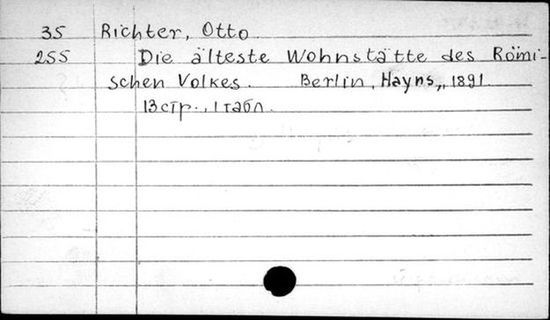 35 Richter, Otto
255 Die älteste Wohnstätte des Römi-
schen Volkes. Berlin, Hayns,, 1891
13 стр., 1 табл.